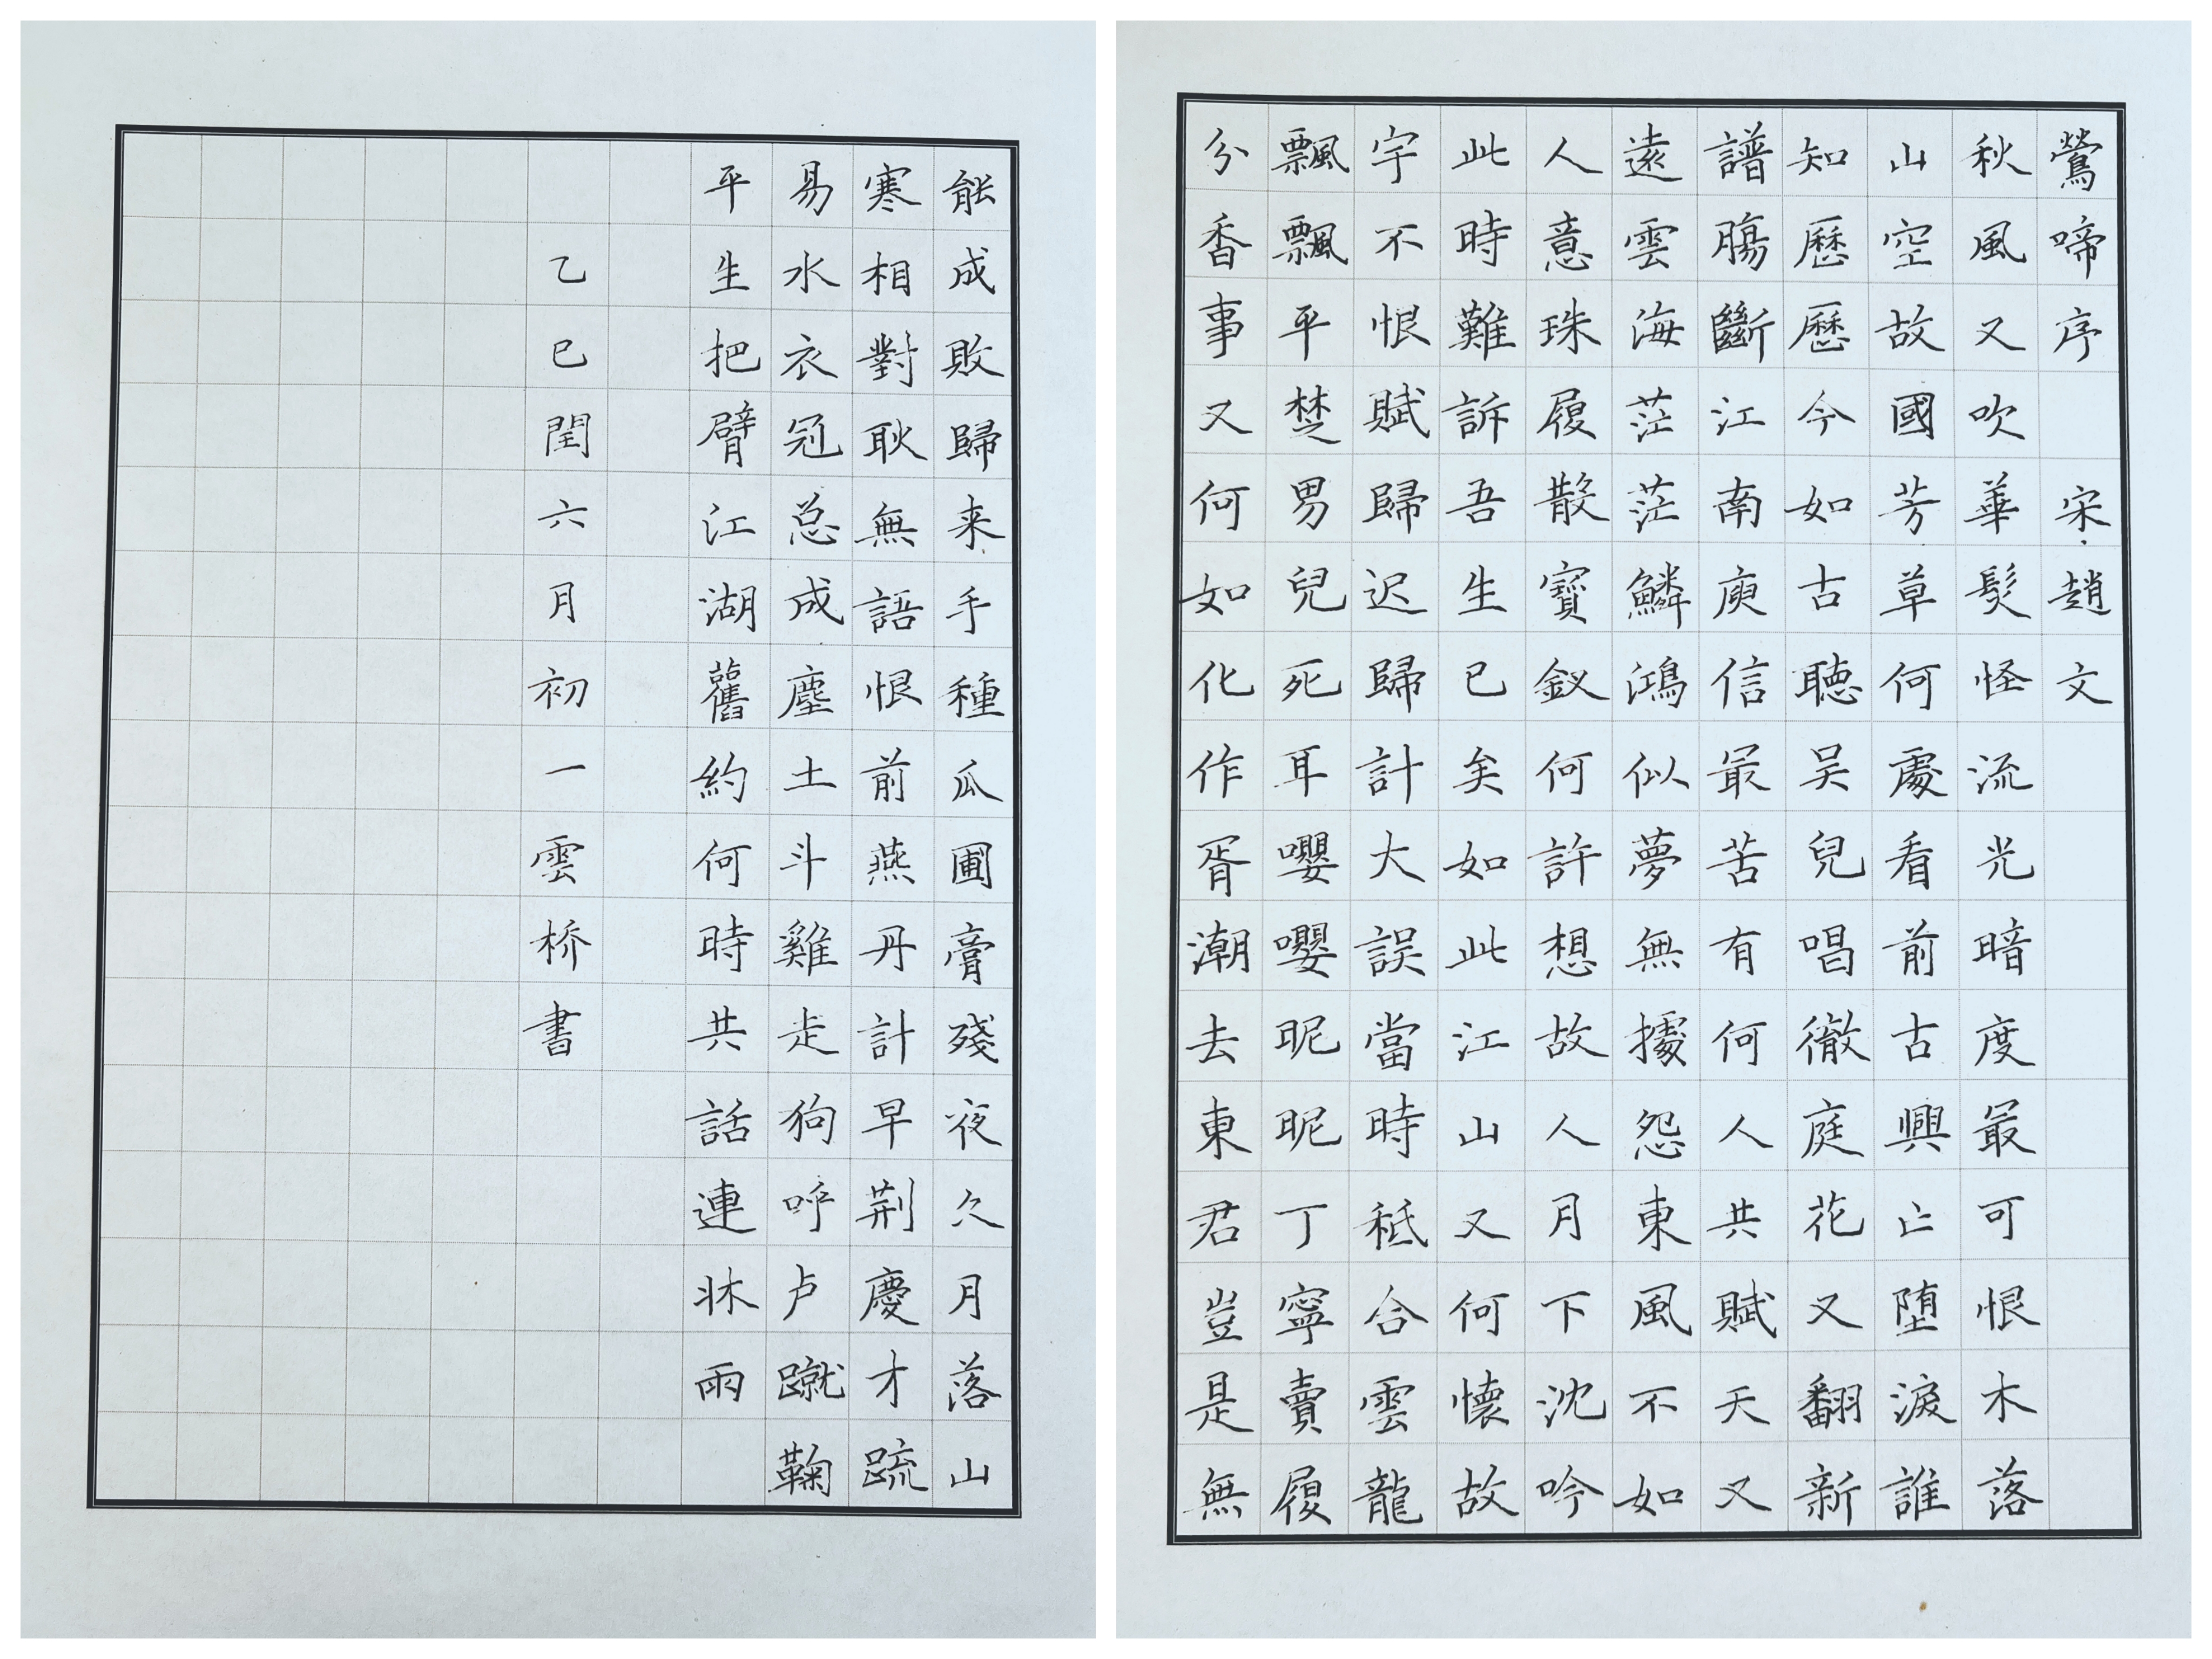 鶯啼序 宋 趙文
秋風又吹華髮怪流光暗度最可恨木落
山空故國芳草何處看前古興亡堕淚誰
知歷歷今如古聽吴兒唱徹庭花又翻新
譜腸斷江南庾信最苦有何人共賦天又
遠雲海茫茫鱗鴻似夢無據怨東風不如
人意珠履散寶釵何許想故人月下沈吟
此時難訴吾生已矣如此江山又何懷故
宇不恨賦歸迟歸計大誤當時秖合雲龍
飄飄平楚男兒死耳嚶嚶昵昵丁寧賣履
分香事又何如化作胥潮去東君豈是無
能成敗歸来手種瓜圃膏殘夜久月落山
寒相對耿無語恨前燕丹計早荆慶才疏
易水衣冠总成塵土斗雞走狗呼卢蹴鞠
平生把臂江湖舊約何時共話連牀雨
乙巳閏六月初一雲桥書